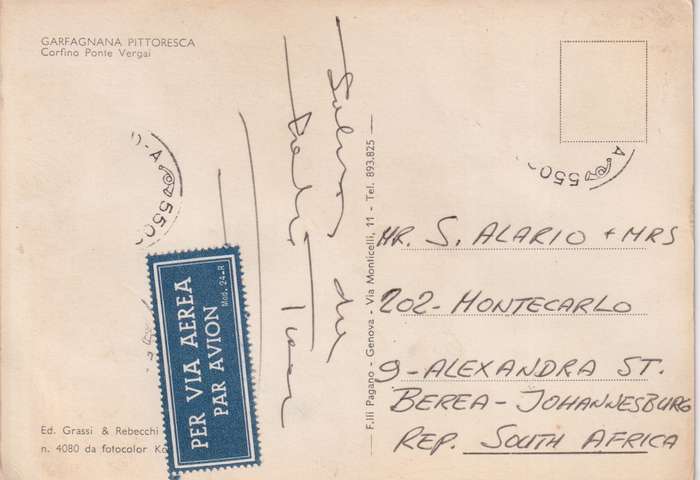 GARFAGNANA PITTORESCA
Corfino Ponte Vergai
HR. S. ALARIO + MRS
202-MONTECARLO
9-ALEXANDRA ST.
BEREA-JOHANNESBURG
REP. SOUTH AFRICA
F.lli Pagano - Genova - Via Monticelli, 11 - Tel. 893.825
PER VIA AEREA
PAR AVION
Mod. 24-R
Ed. Grassi & Rebecchi
n. 4080 da fotocolor